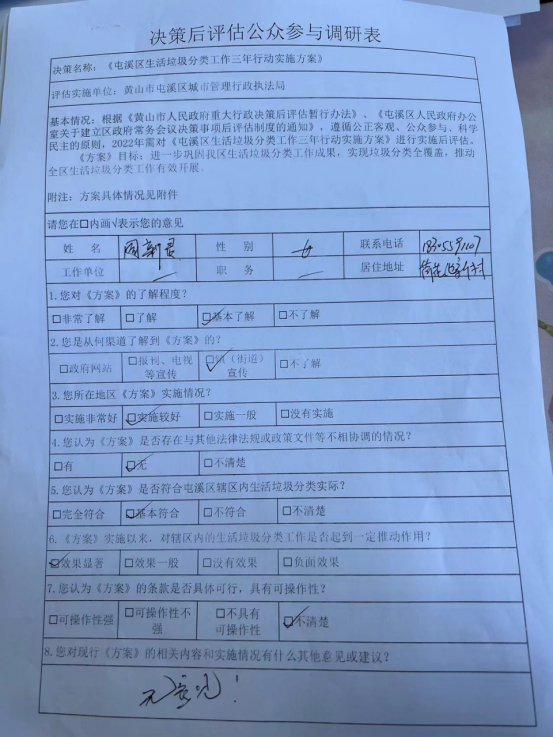 决策后评估公众参与调研表
决策名称：《屯溪区生活垃圾分类工作三年行动实施方案》
评估实施单位：黄山市屯溪区城市管理行政执法局
基本情况：根据《黄山市人民政府重大行政决策后评估暂行办法》、《屯溪区人民政府办公
室关于建立区政府常务会议决策事项后评估制度的通知》，遵循公正客观、公众参与、科学
民主的原则，2022年需对《屯溪区生活垃圾分类工作三年行动实施方案》进行实施后评估。
《方案》目标：进一步巩固我区生活垃圾分类工作成果，实现垃圾分类全覆盖，推动
全区生活垃圾分类工作有效开展。
附注：方案具体情况见附件
请您在□内画√表示您的意见
姓 名 性 别 女 联系电话
工作单位 职 务 居住地址
1.您对《方案》的了解程度？
□非常了解 □了解 ☑基本了解 □不了解
2.您是从何渠道了解到《方案》的？
□政府网站 □报刊、电视 ☑镇（街道） □不了解
等宣传 宣传
3.您所在地区《方案》实施情况？
□实施非常好 ☑实施较好 □实施一般 □没有实施
4.您认为《方案》是否存在与其他法律法规或政策文件等不相协调的情况？
□有 ☑无 □不清楚
5.您认为《方案》是否符合屯溪区辖区内生活垃圾分类实际？
□完全符合 ☑基本符合 □不符合 □不清楚
6.《方案》实施以来，对辖区内的生活垃圾分类工作是否起到一定推动作用？
☑效果显著 □效果一般 □没有效果 □负面效果
7.您认为《方案》的条款是否具体可行，具有可操作性？
□可操作性强 □可操作性不 □不具有 ☑不清楚
强 可操作性
8.您对现行《方案》的相关内容和实施情况有什么其他意见或建议？
无意见！